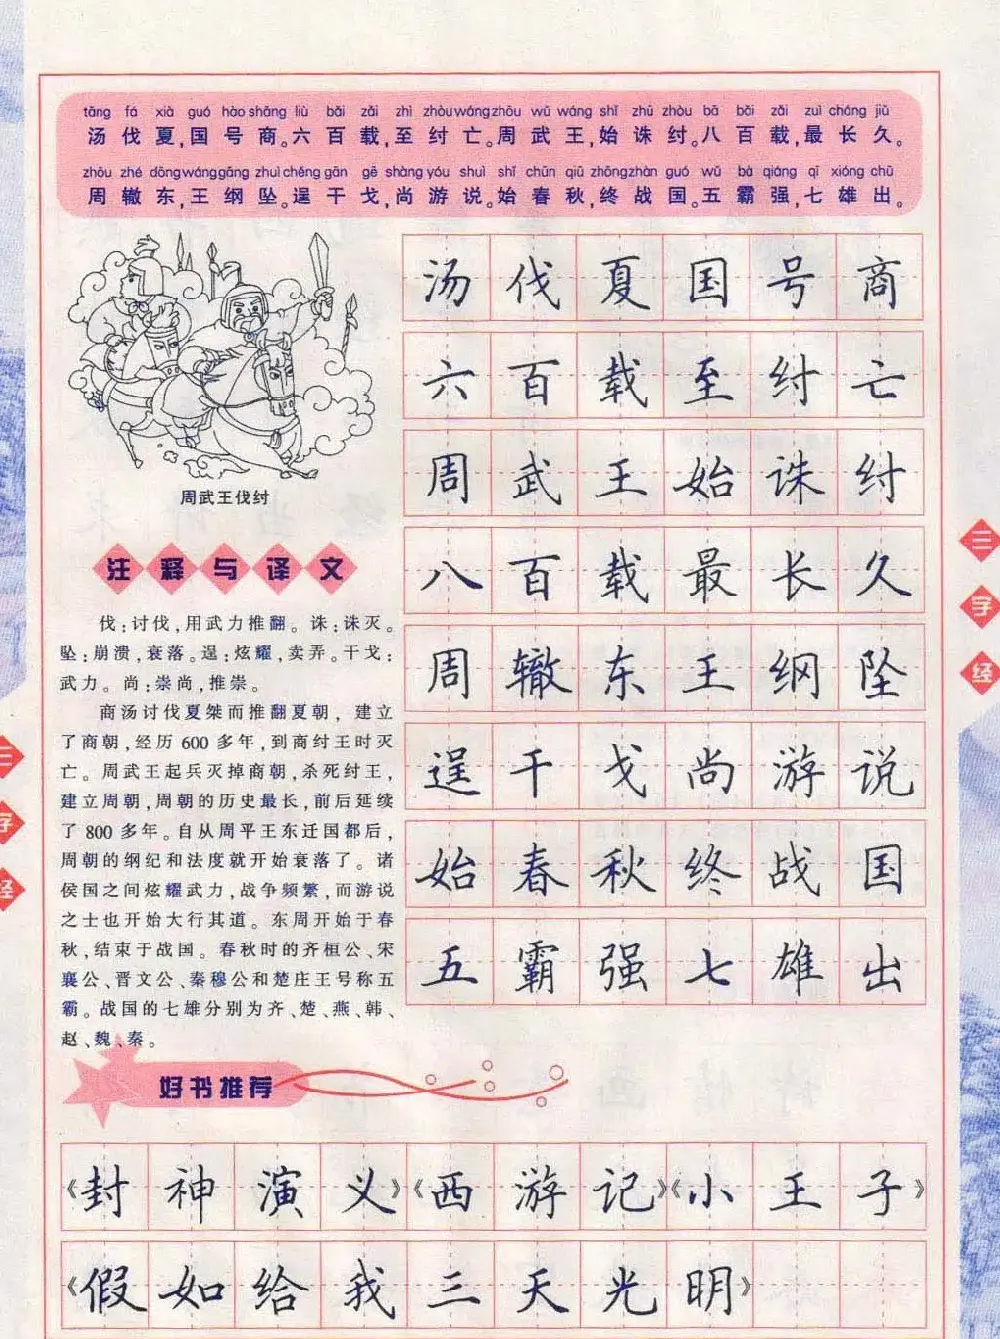 tāng fá xià guó hào shāng liù bǎi zǎi zhì zhòu wáng zhōu wǔ wáng shǐ zhū zhòu bā bǎi zǎi zuì cháng jiǔ
汤伐夏,国号商。六百载,至纣亡。周武王,始诛纣。八百载,最长久。
zhōu zhé dōng wáng gāng zhuì chěng gān gē shàng yóu shuì shǐ chūn qiū zhōng zhàn guó wǔ bà qiáng qī xióng chū
周辙东,王纲坠。逞干戈,尚游说。始春秋,终战国。五霸强,七雄出。
周武王伐纣
注释与译文
伐:讨伐,用武力推翻。诛:诛灭。
坠:崩溃,衰落。逞:炫耀,卖弄。干戈:
武力。尚:崇尚,推崇。
商汤讨伐夏桀而推翻夏朝,建立
了商朝,经历 600 多年,到商纣王时灭
亡。周武王起兵灭掉商朝,杀死纣王,
建立周朝,周朝的历史最长,前后延续
了 800 多年。自从周平王东迁国都后,
周朝的纲纪和法度就开始衰落了。诸
侯国之间炫耀武力,战争频繁,而游说
之士也开始大行其道。东周开始于春
秋,结束于战国。春秋时的齐桓公、宋
襄公、晋文公、秦穆公和楚庄王号称五
霸。战国的七雄分别为齐、楚、燕、韩、
赵、魏、秦。
汤伐夏国号商
六百载至纣亡
周武王始诛纣
八百载最长久
周辙东王纲坠
逞干戈尚游说
始春秋终战国
五霸强七雄出
三字经
三字经
好书推荐
《封神演义》《西游记》《小王子》
《假如给我三天光明》